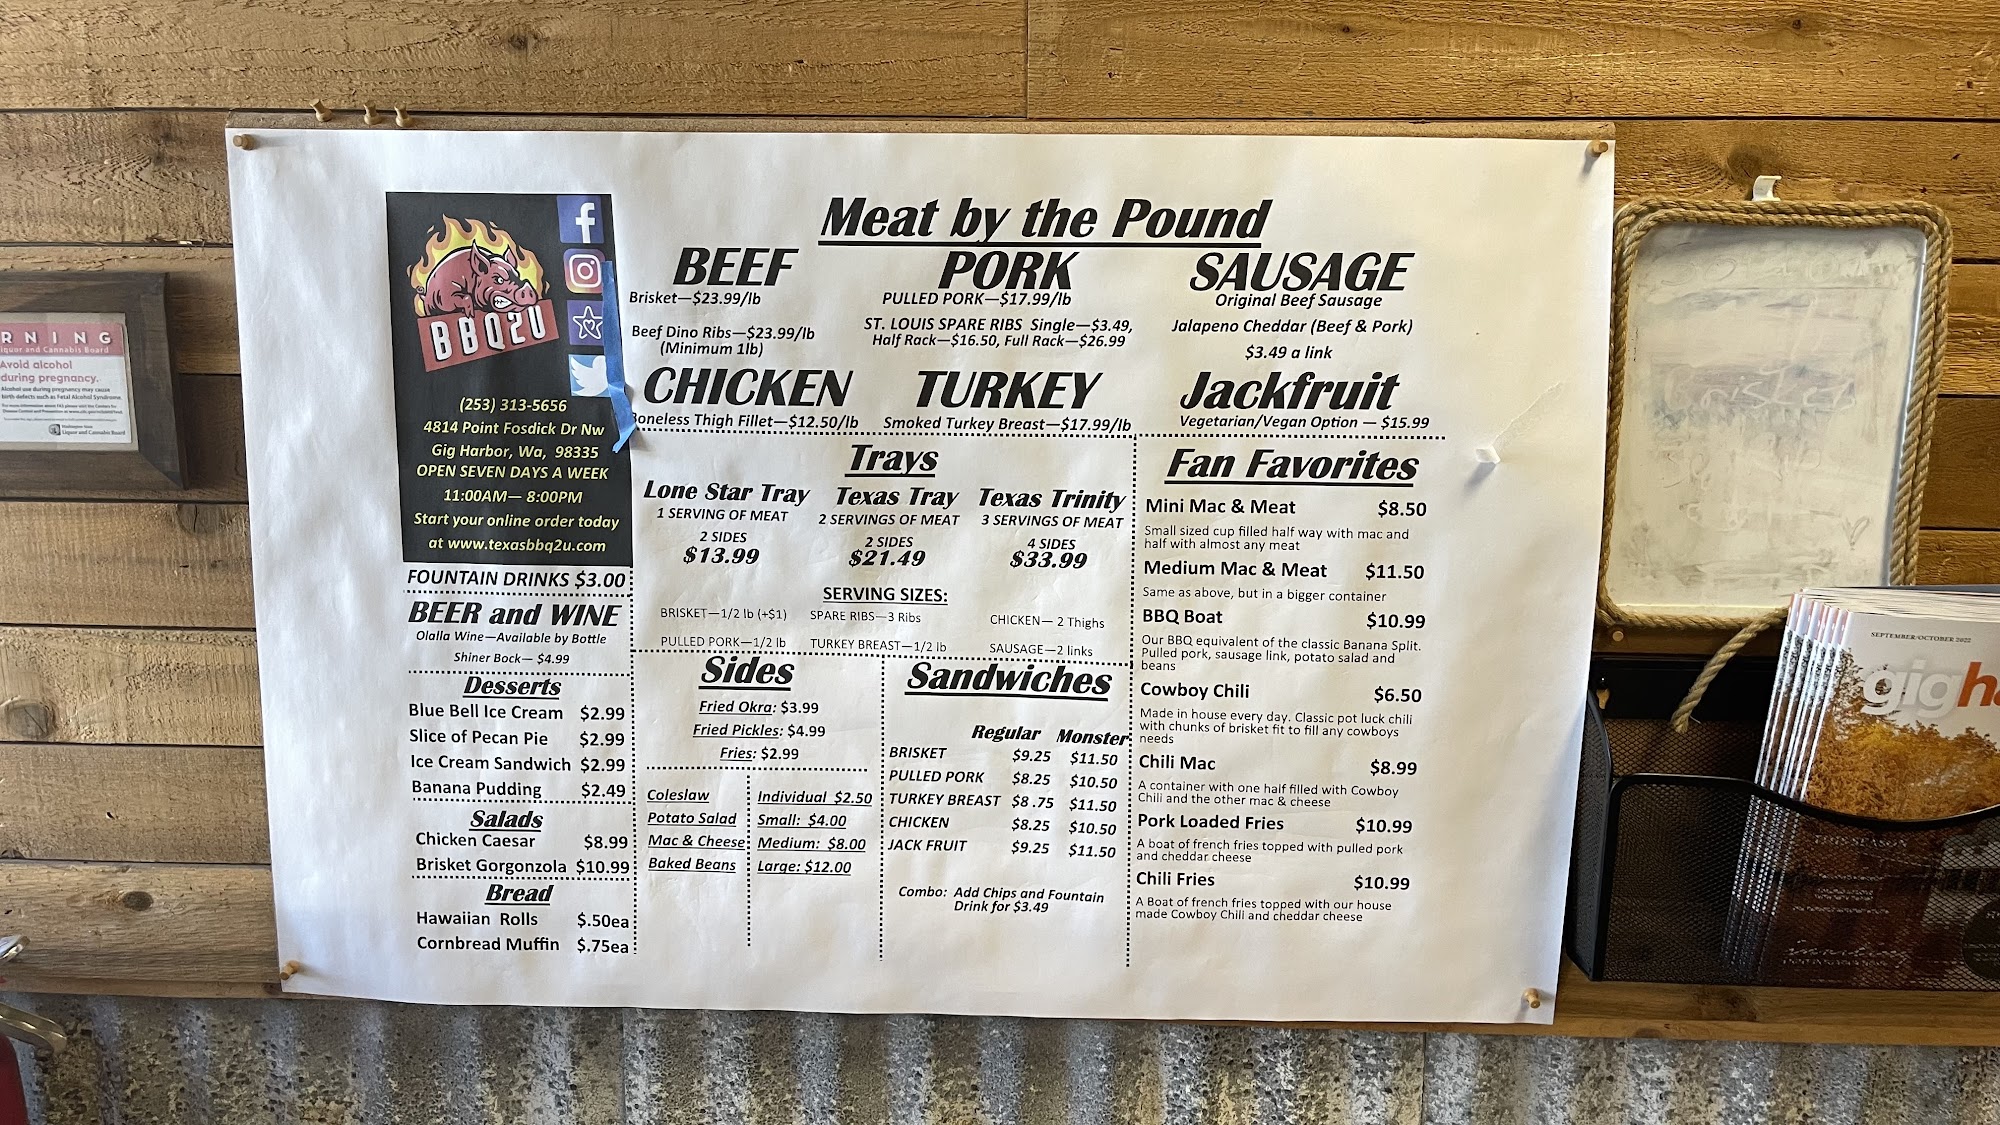 RNING
iquor and Cannabis Board
Avoid alcohol
during pregnancy.
Alcohol use during pregnancy may cause
birth defects such as Fetal Alcohol Syndrome.
Liquor and Cannabis Board
BBQ2U
(253) 313-5656
4814 Point Fosdick Dr Nw
Gig Harbor, Wa, 98335
OPEN SEVEN DAYS A WEEK
11:00AM— 8:00PM
Start your online order today
at www.texasbbq2u.com
FOUNTAIN DRINKS $3.00
BEER and WINE
Olalla Wine—Available by Bottle
Shiner Bock— $4.99
Desserts
Blue Bell Ice Cream $2.99
Slice of Pecan Pie $2.99
Ice Cream Sandwich $2.99
Banana Pudding $2.49
Salads
Chicken Caesar $8.99
Brisket Gorgonzola $10.99
Bread
Hawaiian Rolls $.50ea
Cornbread Muffin $.75ea
Meat by the Pound
BEEF
Brisket—$23.99/lb
Beef Dino Ribs—$23.99/lb
(Minimum 1lb)
PORK
PULLED PORK—$17.99/lb
ST. LOUIS SPARE RIBS Single—$3.49,
Half Rack—$16.50, Full Rack—$26.99
SAUSAGE
Original Beef Sausage
Jalapeno Cheddar (Beef & Pork)
$3.49 a link
CHICKEN
Boneless Thigh Fillet—$12.50/lb
TURKEY
Smoked Turkey Breast—$17.99/lb
Jackfruit
Vegetarian/Vegan Option — $15.99
Trays
Lone Star Tray
1 SERVING OF MEAT
2 SIDES
$13.99
Texas Tray
2 SERVINGS OF MEAT
2 SIDES
$21.49
Texas Trinity
3 SERVINGS OF MEAT
4 SIDES
$33.99
SERVING SIZES:
BRISKET—1/2 lb (+$1) SPARE RIBS—3 Ribs CHICKEN— 2 Thighs
PULLED PORK—1/2 lb TURKEY BREAST—1/2 lb SAUSAGE—2 links
Sides
Fried Okra: $3.99
Fried Pickles: $4.99
Fries: $2.99
Coleslaw
Potato Salad
Mac & Cheese
Baked Beans
Individual $2.50
Small: $4.00
Medium: $8.00
Large: $12.00
Sandwiches
Regular Monster
BRISKET $9.25 $11.50
PULLED PORK $8.25 $10.50
TURKEY BREAST $8.75 $11.50
CHICKEN $8.25 $10.50
JACK FRUIT $9.25 $11.50
Combo: Add Chips and Fountain
Drink for $3.49
Fan Favorites
Mini Mac & Meat $8.50
Small sized cup filled half way with mac and
half with almost any meat
Medium Mac & Meat $11.50
Same as above, but in a bigger container
BBQ Boat $10.99
Our BBQ equivalent of the classic Banana Split.
Pulled pork, sausage link, potato salad and
beans
Cowboy Chili $6.50
Made in house every day. Classic pot luck chili
with chunks of brisket fit to fill any cowboys
needs
Chili Mac $8.99
A container with one half filled with Cowboy
Chili and the other mac & cheese
Pork Loaded Fries $10.99
A boat of french fries topped with pulled pork
and cheddar cheese
Chili Fries $10.99
A Boat of french fries topped with our house
made Cowboy Chili and cheddar cheese
SEPTEMBER/OCTOBER 2022
gigha